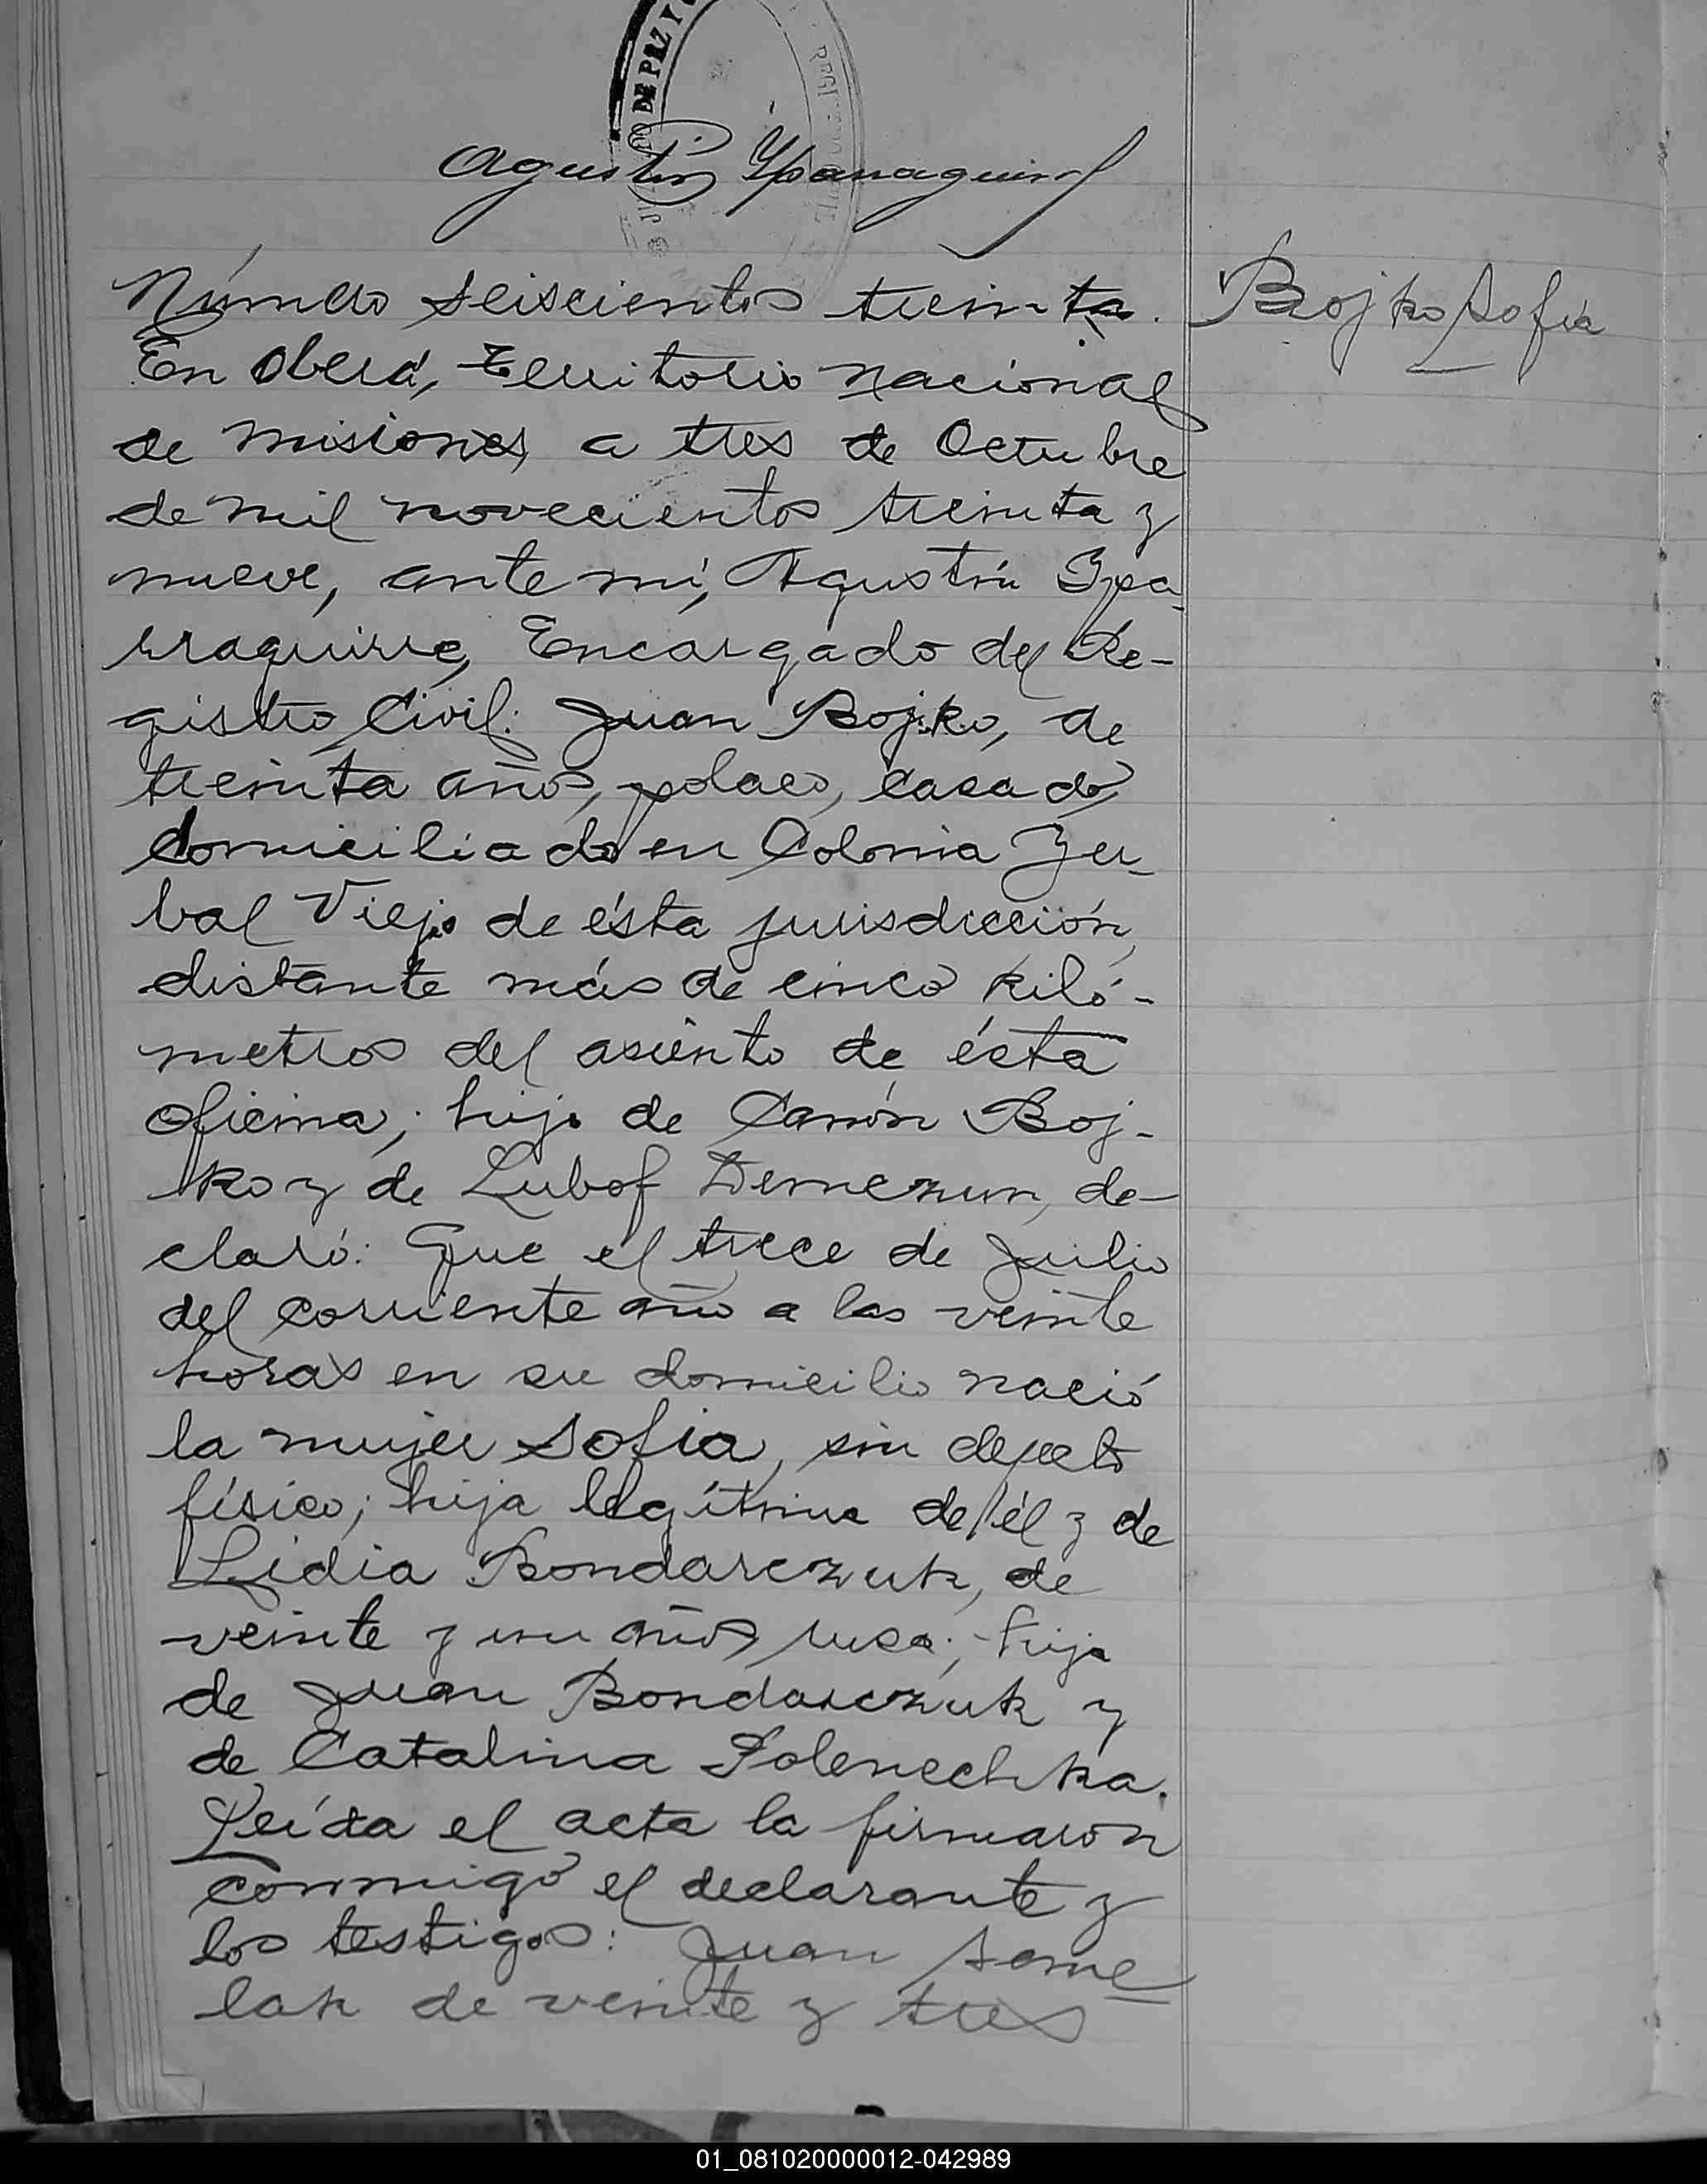 DE PAZ Y
REGI CIVIL
Agustín Yparraguirre
Número seiscientos treinta.
Bojko Sofía
En Oberá, territorio nacional
de misiones, a tres de Octubre
de mil novecientos treinta y
nueve, ante mí, Agustín Ypa-
rraguirre, Encargado del Re-
gistro Civil: Juan Bojko, de
treinta años, polaco, casado,
domiciliado en Colonia Yer-
bal Viejo de ésta jurisdicción,
distante más de cinco kiló-
metros del asiento de ésta
oficina; hijo de Canón Boj-
ko y de Lubof Demezun, de-
claró: Que el trece de Julio
del corriente año a las veinte
horas en su domicilio nació
la mujer Sofia, sin defecto
físico; hija legítima de él y de
Lidia Bondarczuk, de
veinte y un años, rusa; hija
de Juan Bondarczuk y
de Catalina Polenechka.
Leída el acta la firmaron
conmigo el declarante y
los testigos: Juan Seme
lak de veinte y tres
01_081020000012-042989